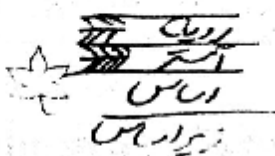 رویه
آستر
اساس
زیر اساس